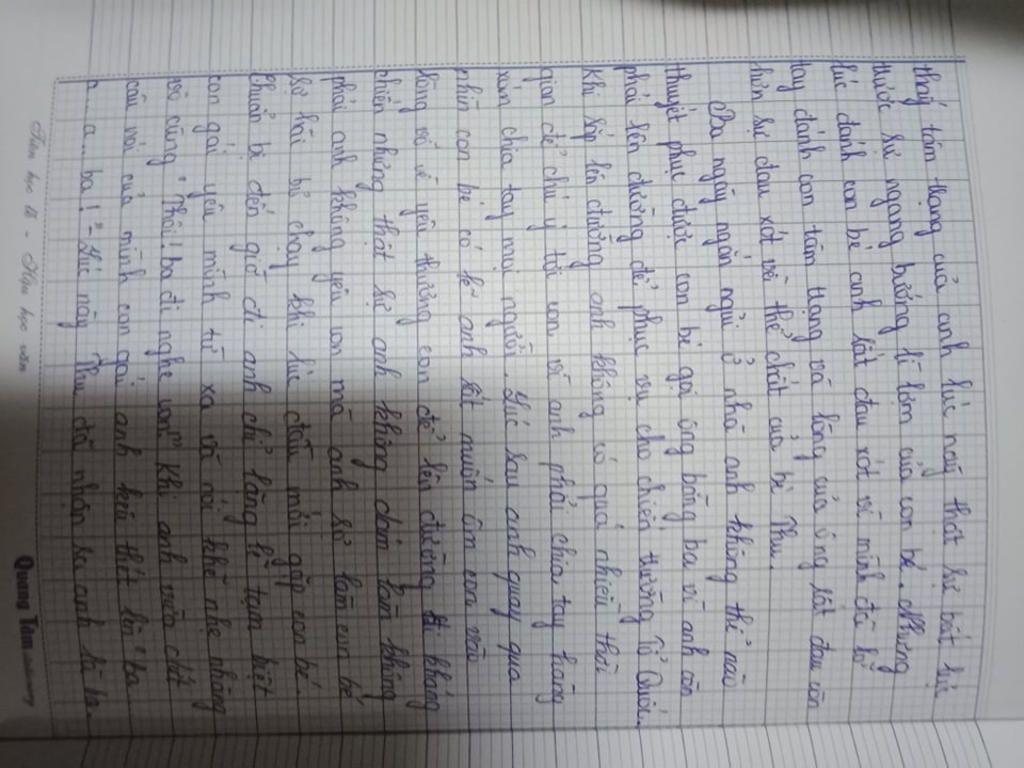 thấy tâm trạng của anh lúc này thật sự bất lực
trước sự ngang bướng lì lợm của con bé. Nhưng
lúc đánh con bé anh rất đau xót vì mình đã lỡ
tay đánh con tâm trạng và lòng của ông rất đau còn
hơn sự đau xót về thể chất của bé Thu.
Ba ngày ngắn ngủi ở nhà anh không thể nào
thuyết phục được con bé gọi ông bằng ba vì anh còn
phải lên đường để phục vụ cho chiến trường Tổ Quốc.
Khi sắp lên đường anh không có quá nhiều thời
gian để chú ý tới con vì anh phải chia tay hàng
xóm chia tay mọi người. Lúc sau anh quay qua
nhìn con bé có lẽ anh rất muốn ôm con vào
lòng vỗ về yêu thương con để lên đường đi kháng
chiến nhưng thật sự anh không dám làm không
phải anh không yêu con mà anh sợ làm con bé
sợ hãi bỏ chạy khi lúc đầu mới gặp con bé.
Chuẩn bị đến giờ đi anh chỉ lẳng lặng tạm biệt
con gái yêu mình từ xa và nói khẽ nhẹ nhàng
vô cùng "Thôi! ba đi nghe con" Khi anh vừa dứt
câu nói của mình con gái anh kêu thét lên "ba
a... a... ba!" - Lúc này Thu đã nhận ra anh là ba.
Tiên học lễ - Hậu học văn
Quang Tâm